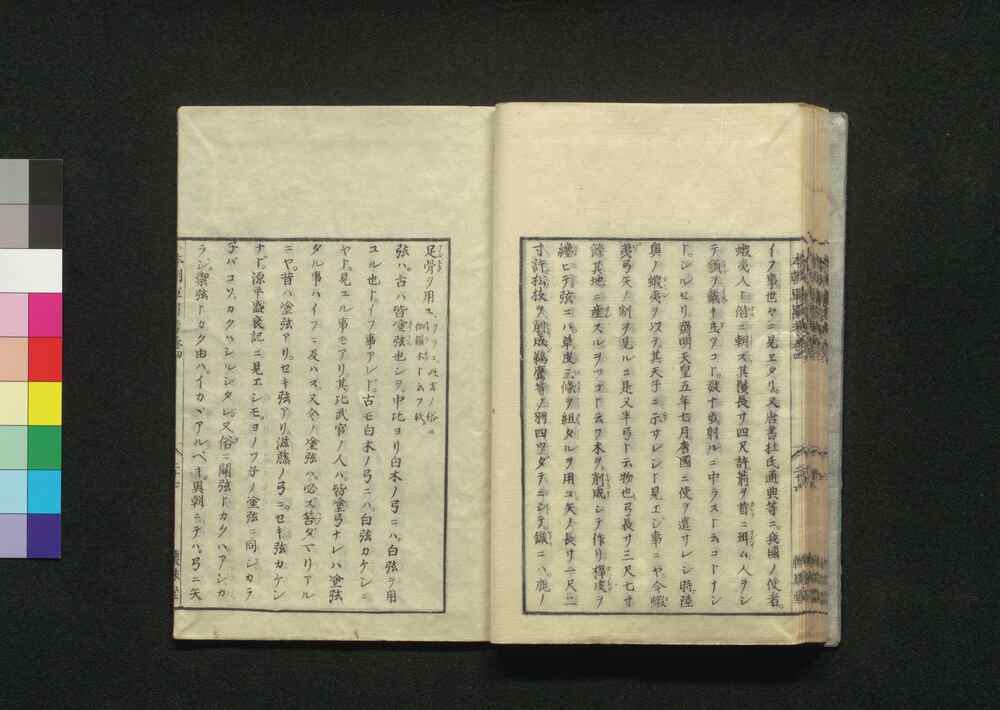 イフ事世々ニ見エタリ。又唐書杜氏通典等ニ我國ノ使者。
蝦夷人ト偕ニ朝ス其鬚長サ四尺許箭ヲ首ニ珥ム人ヲシ
テ瓠ヲ戴キ立ツコト。数十歩射ルニ中ラスト云コトナシ
ト。シルセリ齊明天皇五年七月唐國ニ使ヲ遣サレシ時陸
奥ノ蝦夷ヲ以テ其天子ニ示サレシト見エシ事ニヤ今蝦
夷弓矢ノ制ヲ見ルニ是又半弓ト云物也弓長サ三尺七寸
餘其地ニ産スルヲ云フ木ヲ削成シテ作リ樺皮ヲ
纏ヒテ弦ニハ草皮三條ヲ組タルヲ用ユ矢ノ長サ一尺二
寸許松枝ヲ削成鷄鷹等ノ羽四ツダテニシテ鏃ニハ。鹿ノ
足骨ヲ用ユ
弦ハ。古ハ皆塗弦也シヲ。中比ヨリ白木ノ弓ニハ。白弦ヲ用
ユル也ト。イフ事アレド。古モ白木ノ弓ニハ白弦カケシニ
ヤト。見エル事モアリ。其比武官ノ人ハ。皆塗弓ナレハ塗弦
タル事ハイフニ及ハス。又今ノ塗弦ハ必ズ苔ダマリアル
ニヤ。昔ハ塗弦アリ。セキ弦アリ。滋藤ノ弓ニ。セキ弦カケシ
ナト。源平盛衰記ニ見エシモ。ヨノツ子ノ塗弦ニ同シカラ
子バコソ。カクハシルシタレ。又俗ニ關弦トカクハ。アシカ
ラジ。禦弦トカク由ハ。イカヾアルベキ。異朝ニテハ。弓ニ矢